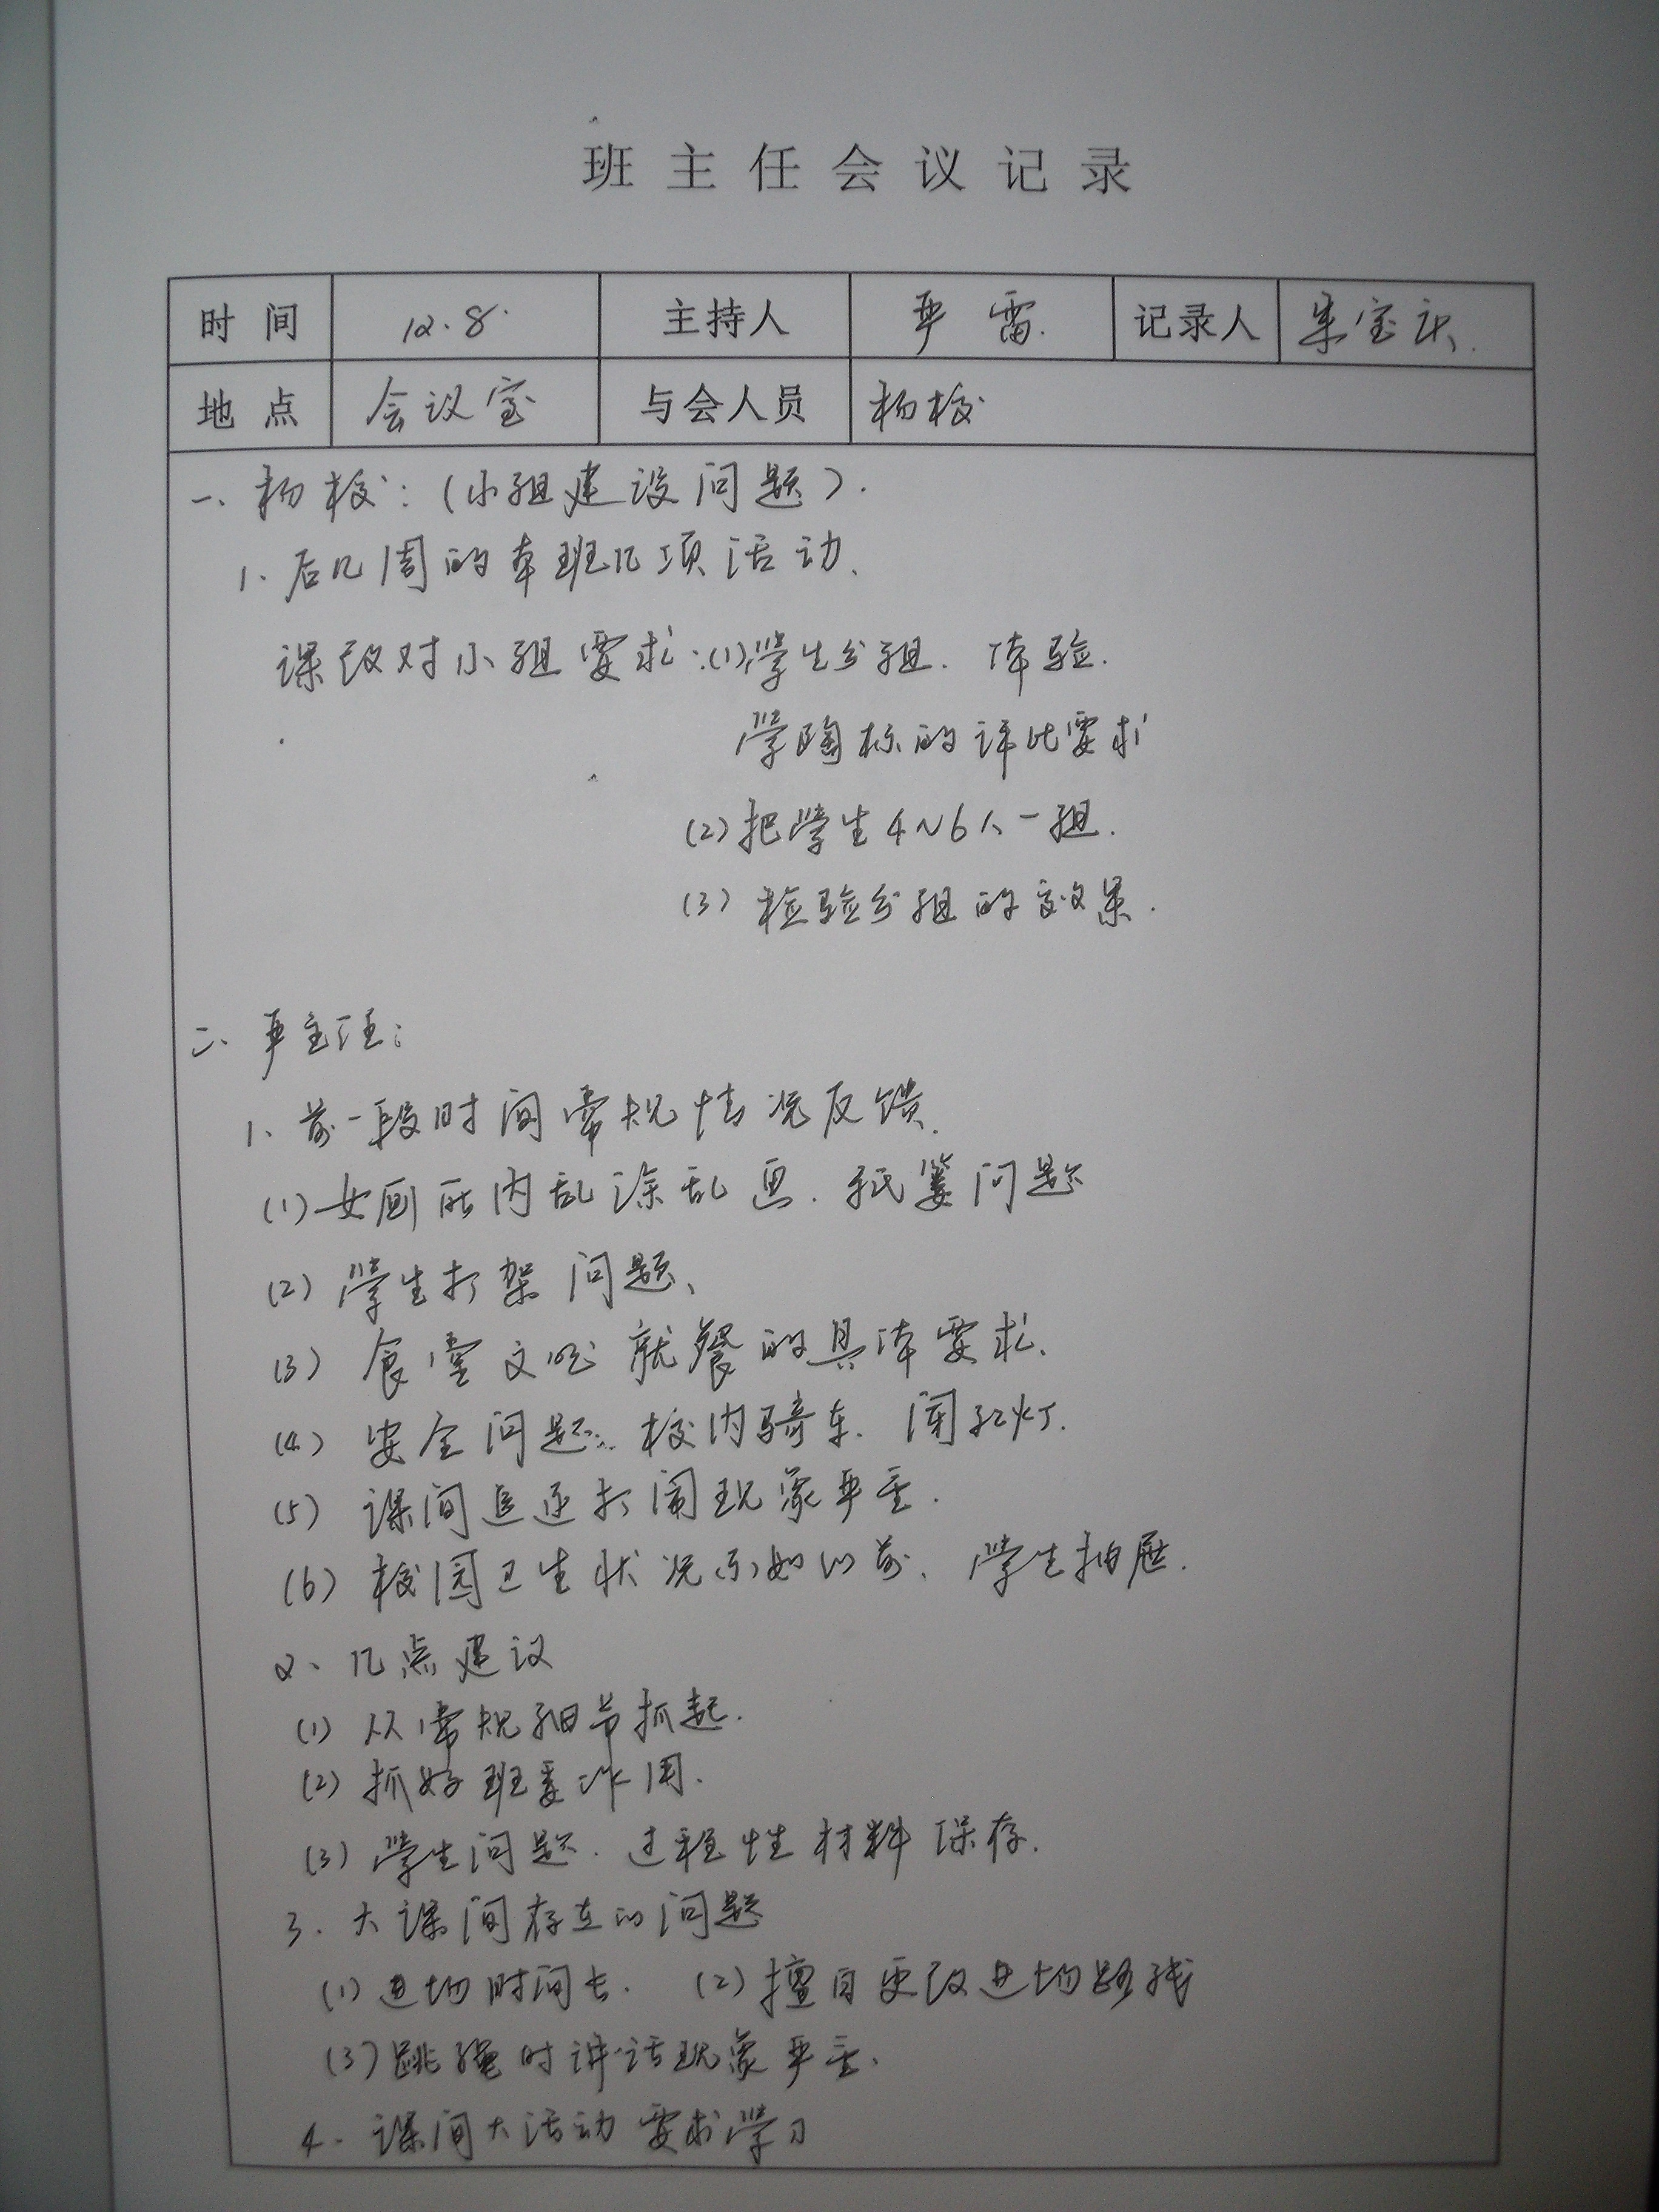 班主任会议记录
时间 12.8. 主持人 严雷. 记录人 朱宝庆.
地点 会议室 与会人员 杨校
一、杨校:(小组建设问题).
1、后几周的本班几项活动、
课改对小组要求:(1)学生分组. 体验.
学陶标的评比要求
(2)把学生4~6人一组.
(3)检验分组的效果.
二、严主任:
1、前一段时间常规情况反馈.
(1)女厕所内乱涂乱画. 纸篓问题
(2)学生打架问题、
(3)食堂文明就餐的具体要求、
(4)安全问题:校内骑车. 闯红灯.
(5)课间追逐打闹现象严重.
(6)校园卫生状况不如以前、学生抽屉.
2、几点建议
(1)从常规细节抓起.
(2)抓好班委作用.
(3)学生问题. 过程性材料保存.
3.大课间存在的问题
(1)进场时间长. (2)擅自更改进场路线
(3)跳绳时讲话现象严重.
4.课间大活动要求学习